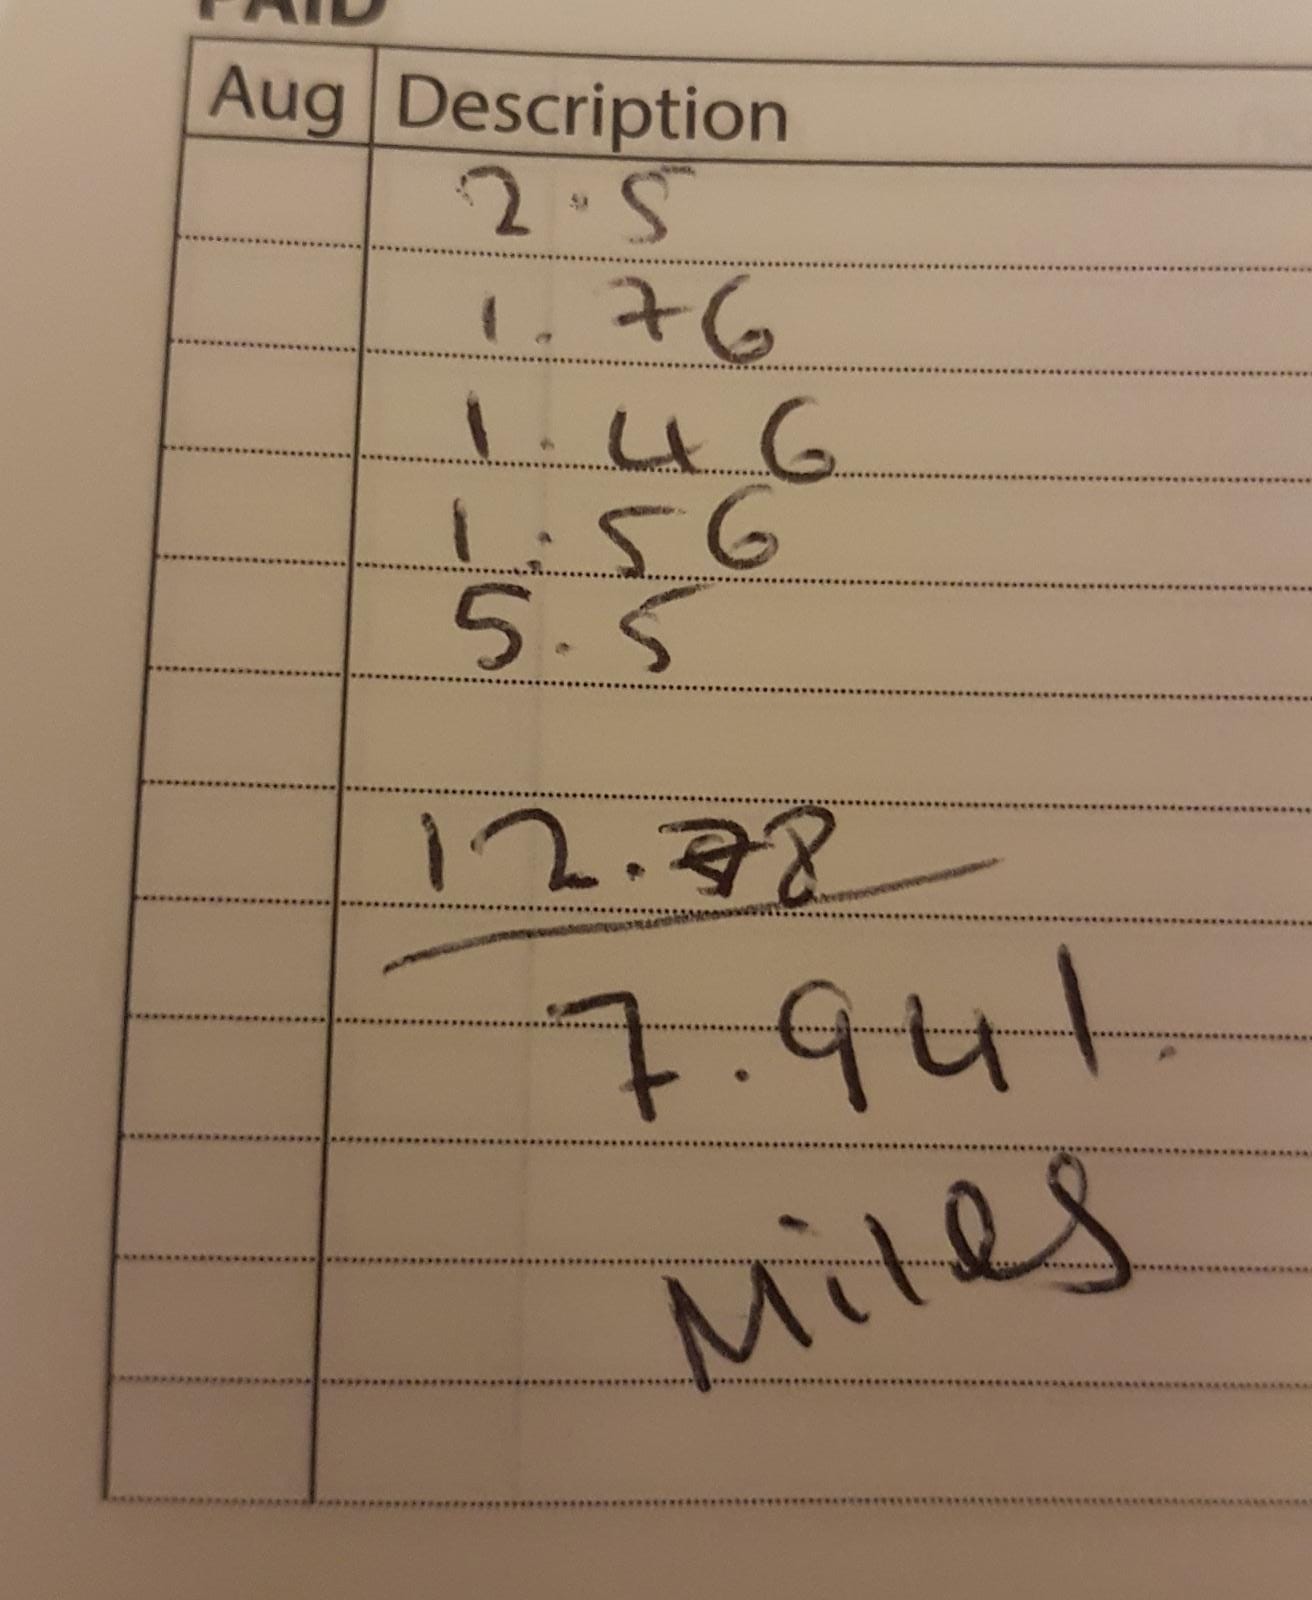 PAID
Aug Description
2.5
1.76
1.46
1.56
5.5
12.78
7.941.
Miles